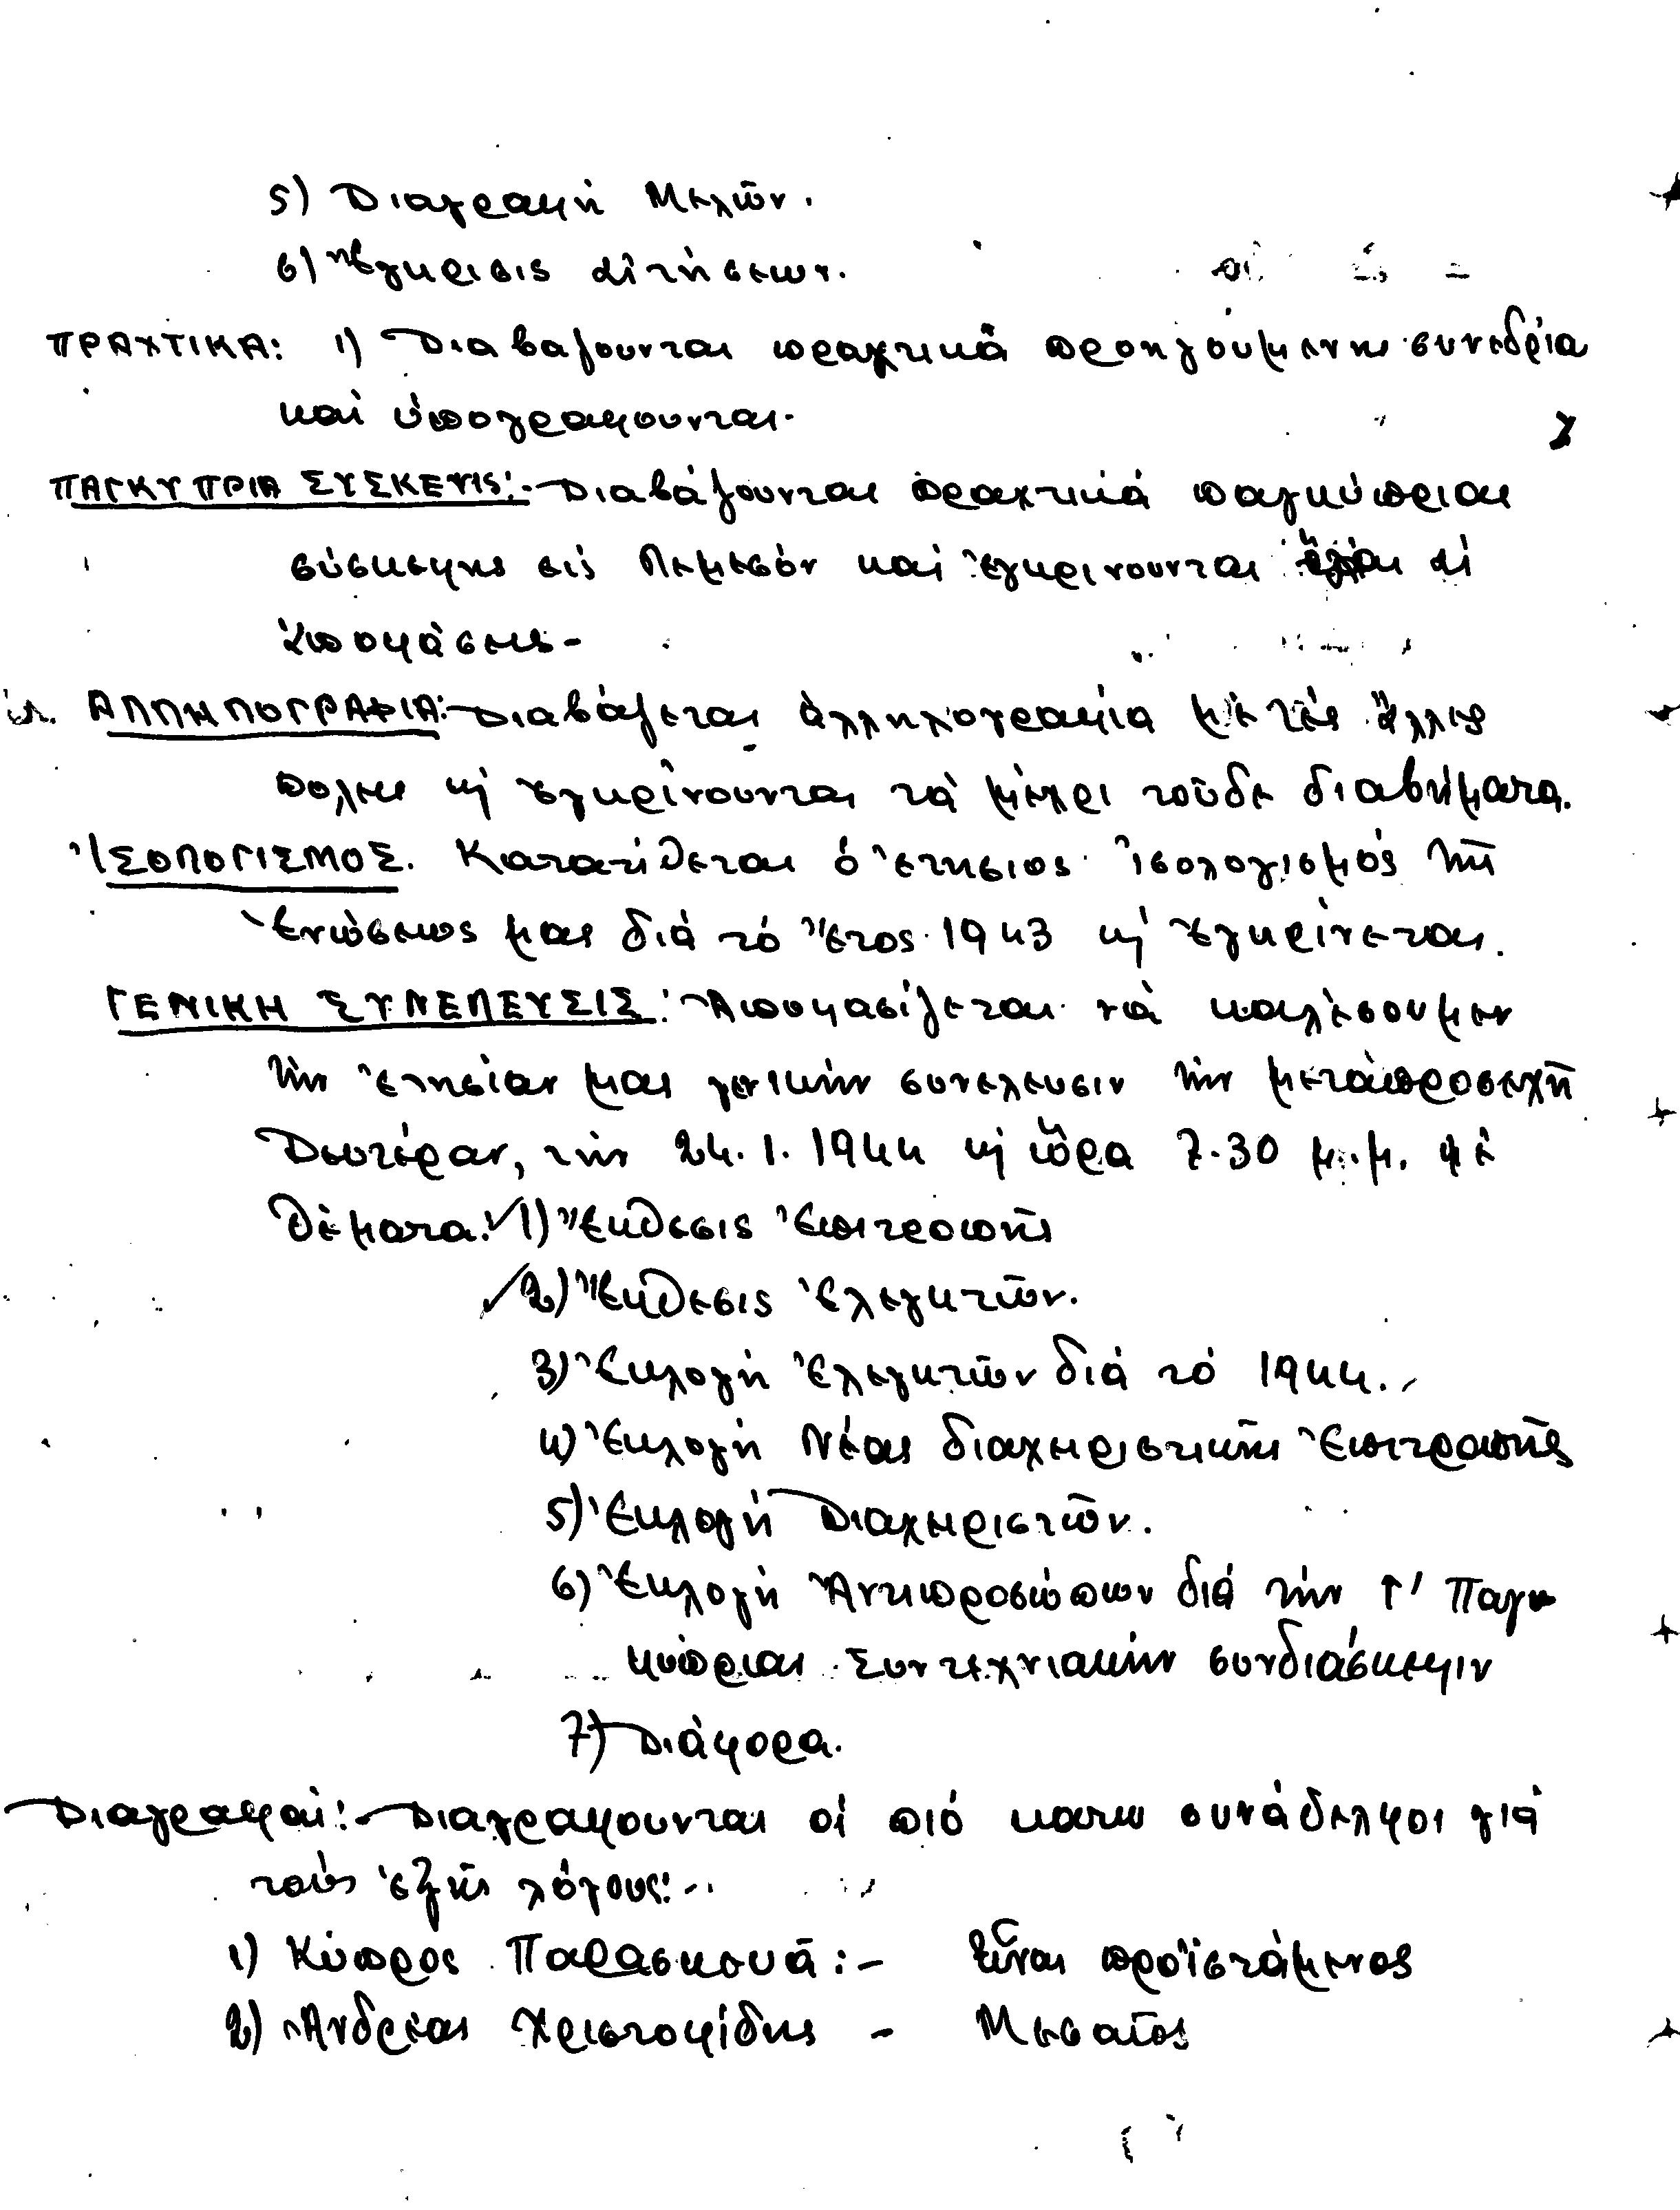 5) Διαγραφή Μελῶν.
6) Ἔγκρισις αἰτήσεων.
ΠΡΑΧΤΙΚΑ: 1) Διαβαζουνται πραχτικά προηγούμενης συνεδρία
καί ὑπογραφουνται.
ΠΑΓΚΥΠΡΙΑ ΣΥΣΚΕΨΙΣ:- Διαβάζουνται πραχτικά παγκύπριας
σύσκεψης εἰς Λεμεσόν καί ἐγκρινουνται ὅλαι αἱ
ἀποφάσεις-
ΑΛΛΗΛΟΓΡΑΦΙΑ:- Διαβάζεται ἀλληλογραφία μέ τές ἄλλες
πολεις κ᾽ ἐγκρίνουνται τά μέχρι τοῦδε διαβήματα.
ἸΣΟΛΟΓΙΣΜΟΣ. Κατατίθεται ὁ ἐτησιος ἰσολογισμός τῆς
Ἑνώσεως μας διά τό ἔτος 1943 κ᾽ ἐγκρίνεται.
ΓΕΝΙΚΗ ΣΥΝΕΛΕΥΣΙΣ:- Ἀποφασίζεται νά καλέσουμεν
τήν ἐτησίαν μας γενικήν συνελευσιν τήν μεταπροσεχῆ
Δευτέραν, τήν 24.1.1944 κ᾽ ὥρα 7.30 μ.μ. μέ
θέματα: 1) Ἔκθεσις Ἐπιτροπῆς
2) Ἔκθεσις Ἐλεγκτῶν.
3) Ἐκλογή Ἐλεγκτῶν διά τό 1944.
4) Ἐκλογή Νέας διαχειριστικῆς Ἐπιτροπῆς
5) Ἐκλογή Διαχειριστῶν.
6) Ἐκλογή Ἀντιπροσώπων διά τήν Γ' Παγ
κύπριαν Συντεχνιακήν συνδιάσκεψιν
7) Διάφορα.
Διαγραφαί:- Διαγραφουνται οἱ πιό κατω συνάδελφοι γιά
τούς ἑξῆς λόγους:-
1) Κύπρος Παρασκευᾶ:- Εἶναι προϊστάμενος
2) Ἀνδρέας Χριστοφίδης - Μεσαῖος